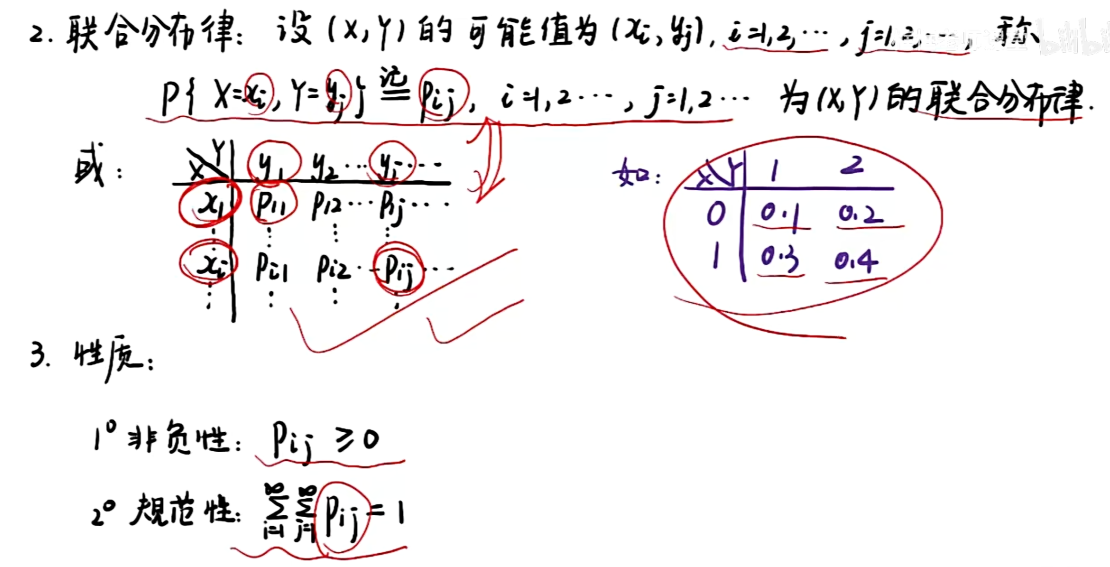 2. 联合分布律: 设 (X,Y) 的可能值为 (xi, yj), i=1,2,⋯, j=1,2,⋯, 称
P{ X=xi, Y=yj } 记= pij, i=1,2⋯, j=1,2⋯ 为(X,Y)的联合分布律.
或: X\Y y1 y2 ⋯ yj ⋯ 如: X\Y 1 2
x1 p11 p12 ⋯ p1j ⋯ 0 0.1 0.2
⋮ ⋮ ⋮ ⋮
xi pi1 pi2 ⋯ pij ⋯ 1 0.3 0.4
⋮ ⋮ ⋮ ⋮
3. 性质:
1° 非负性: pij ≥ 0
2° 规范性: ∑i=1∞ ∑j=1∞ pij = 1